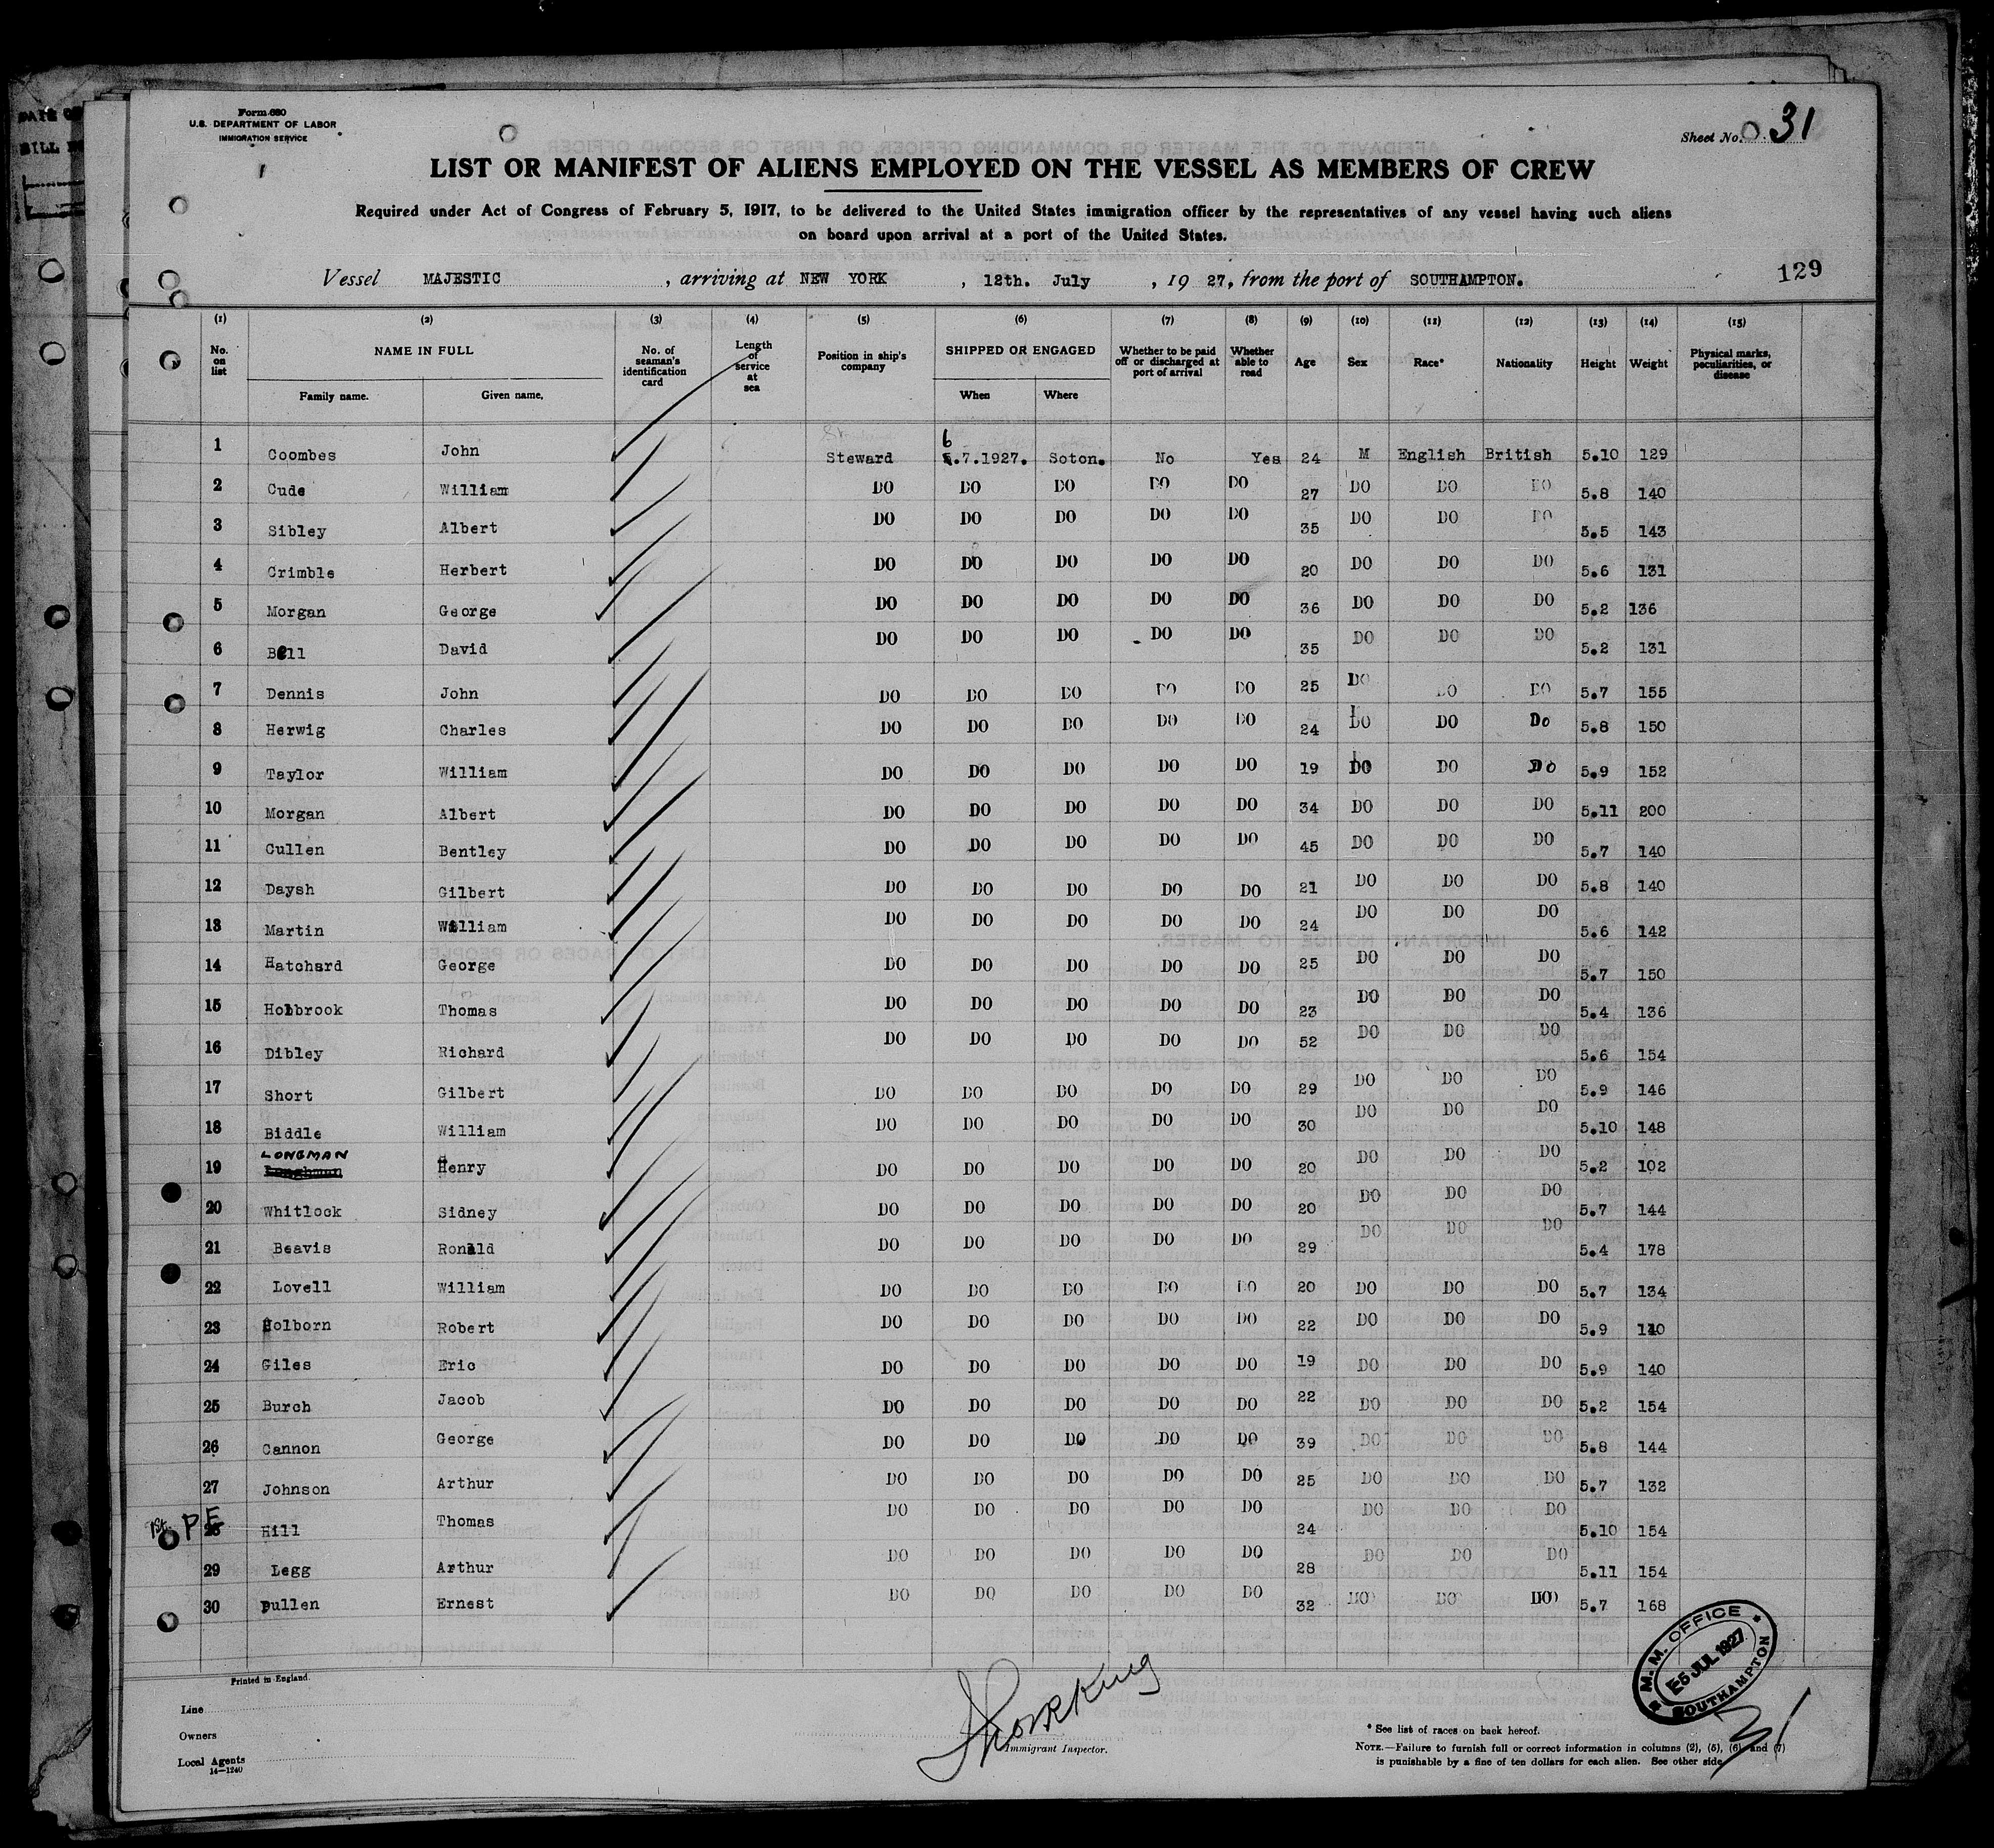 Form 680
U.S. DEPARTMENT OF LABOR
IMMIGRATION SERVICE
Sheet No. 31
LIST OR MANIFEST OF ALIENS EMPLOYED ON THE VESSEL AS MEMBERS OF CREW
Required under Act of Congress of February 5, 1917, to be delivered to the United States immigration officer by the representatives of any vessel having such aliens
on board upon arrival at a port of the United States.
Vessel MAJESTIC, arriving at NEW YORK, 12th. July, 19 27, from the port of SOUTHAMPTON.
129
(1) (2) (3) (4) (5) (6) (7) (8) (9) (10) (11) (12) (13) (14) (15)
No. on list NAME IN FULL Family name. Given name, No. of seaman's identification card Length of service at sea Position in ship's company SHIPPED OR ENGAGED When Where Whether to be paid off or discharged at port of arrival Whether able to read Age Sex Race* Nationality Height Weight Physical marks, peculiarities, or disease
1 Coombes John Steward 6.7.1927. Soton. No Yes 24 M English British 5.10 129
2 Cude William DO DO DO DO DO 27 DO DO DO 5.8 140
3 Sibley Albert DO DO DO DO DO 35 DO DO DO 5.5 143
4 Crimble Herbert DO DO DO DO DO 20 DO DO DO 5.6 131
5 Morgan George DO DO DO DO DO 36 DO DO DO 5.2 136
6 Bell David DO DO DO DO DO 35 DO DO DO 5.2 131
7 Dennis John DO DO DO DO DO 25 DO DO DO 5.7 155
8 Herwig Charles DO DO DO DO DO 24 DO DO Do 5.8 150
9 Taylor William DO DO DO DO DO 19 DO DO Do 5.9 152
10 Morgan Albert DO DO DO DO DO 34 DO DO DO 5.11 200
11 Cullen Bentley DO DO DO DO DO 45 DO DO DO 5.7 140
12 Daysh Gilbert DO DO DO DO DO 21 DO DO DO 5.8 140
13 Martin William DO DO DO DO DO 24 DO DO DO 5.6 142
14 Hatchard George DO DO DO DO DO 25 DO DO DO 5.7 150
15 Holbrook Thomas DO DO DO DO DO 23 DO DO DO 5.4 136
16 Dibley Richard DO DO DO DO DO 52 DO DO DO 5.6 154
17 Short Gilbert DO DO DO DO DO 29 DO DO DO 5.9 146
18 Biddle William DO DO DO DO DO 30 DO DO DO 5.10 148
19 LONGMAN Henry DO DO DO DO DO 20 DO DO DO 5.2 102
20 Whitlock Sidney DO DO DO DO DO 20 DO DO DO 5.7 144
21 Beavis Ronald DO DO DO DO DO 29 DO DO DO 5.4 178
22 Lovell William DO DO DO DO DO 20 DO DO DO 5.7 134
23 Holborn Robert DO DO DO DO DO 22 DO DO DO 5.9 140
24 Giles Eric DO DO DO DO DO 19 DO DO DO 5.9 140
25 Burch Jacob DO DO DO DO DO 22 DO DO DO 5.2 154
26 Cannon George DO DO DO DO DO 39 DO DO DO 5.8 144
27 Johnson Arthur DO DO DO DO DO 25 DO DO DO 5.7 132
1st. P E 28 Hill Thomas DO DO DO DO DO 24 DO DO DO 5.10 154
29 Legg Arthur DO DO DO DO DO 28 DO DO DO 5.11 154
30 Pullen Ernest DO DO DO DO DO 32 DO DO DO 5.7 168
Printed in England.
Line
Owners
Local Agents
14—1240
Immigrant Inspector.
M. M. OFFICE
E5 JUL 1927
SOUTHAMPTON
31
* See list of races on back hereof.
NOTE.—Failure to furnish full or correct information in columns (2), (5), (6) and (7)
is punishable by a fine of ten dollars for each alien. See other side.